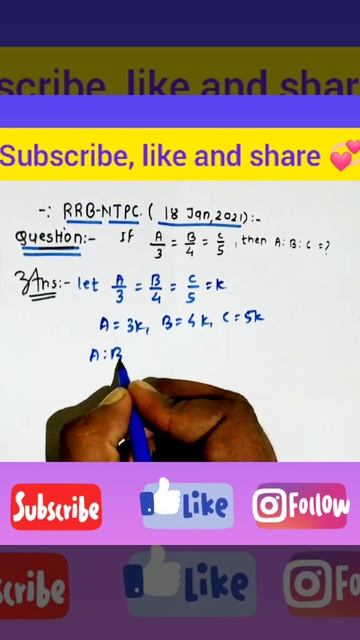 scribe, like and shar
Subscribe, like and share 💞
-: RRB-NTPC. ( 18 Jan, 2021) :-
Question:- If A/3 = B/4 = C/5, then A:B:C=?
Ans:- let A/3 = B/4 = C/5 = K
A = 3K, B = 4K, C = 5K
A:B
Subscribe Like Follow
scribe Like Fo